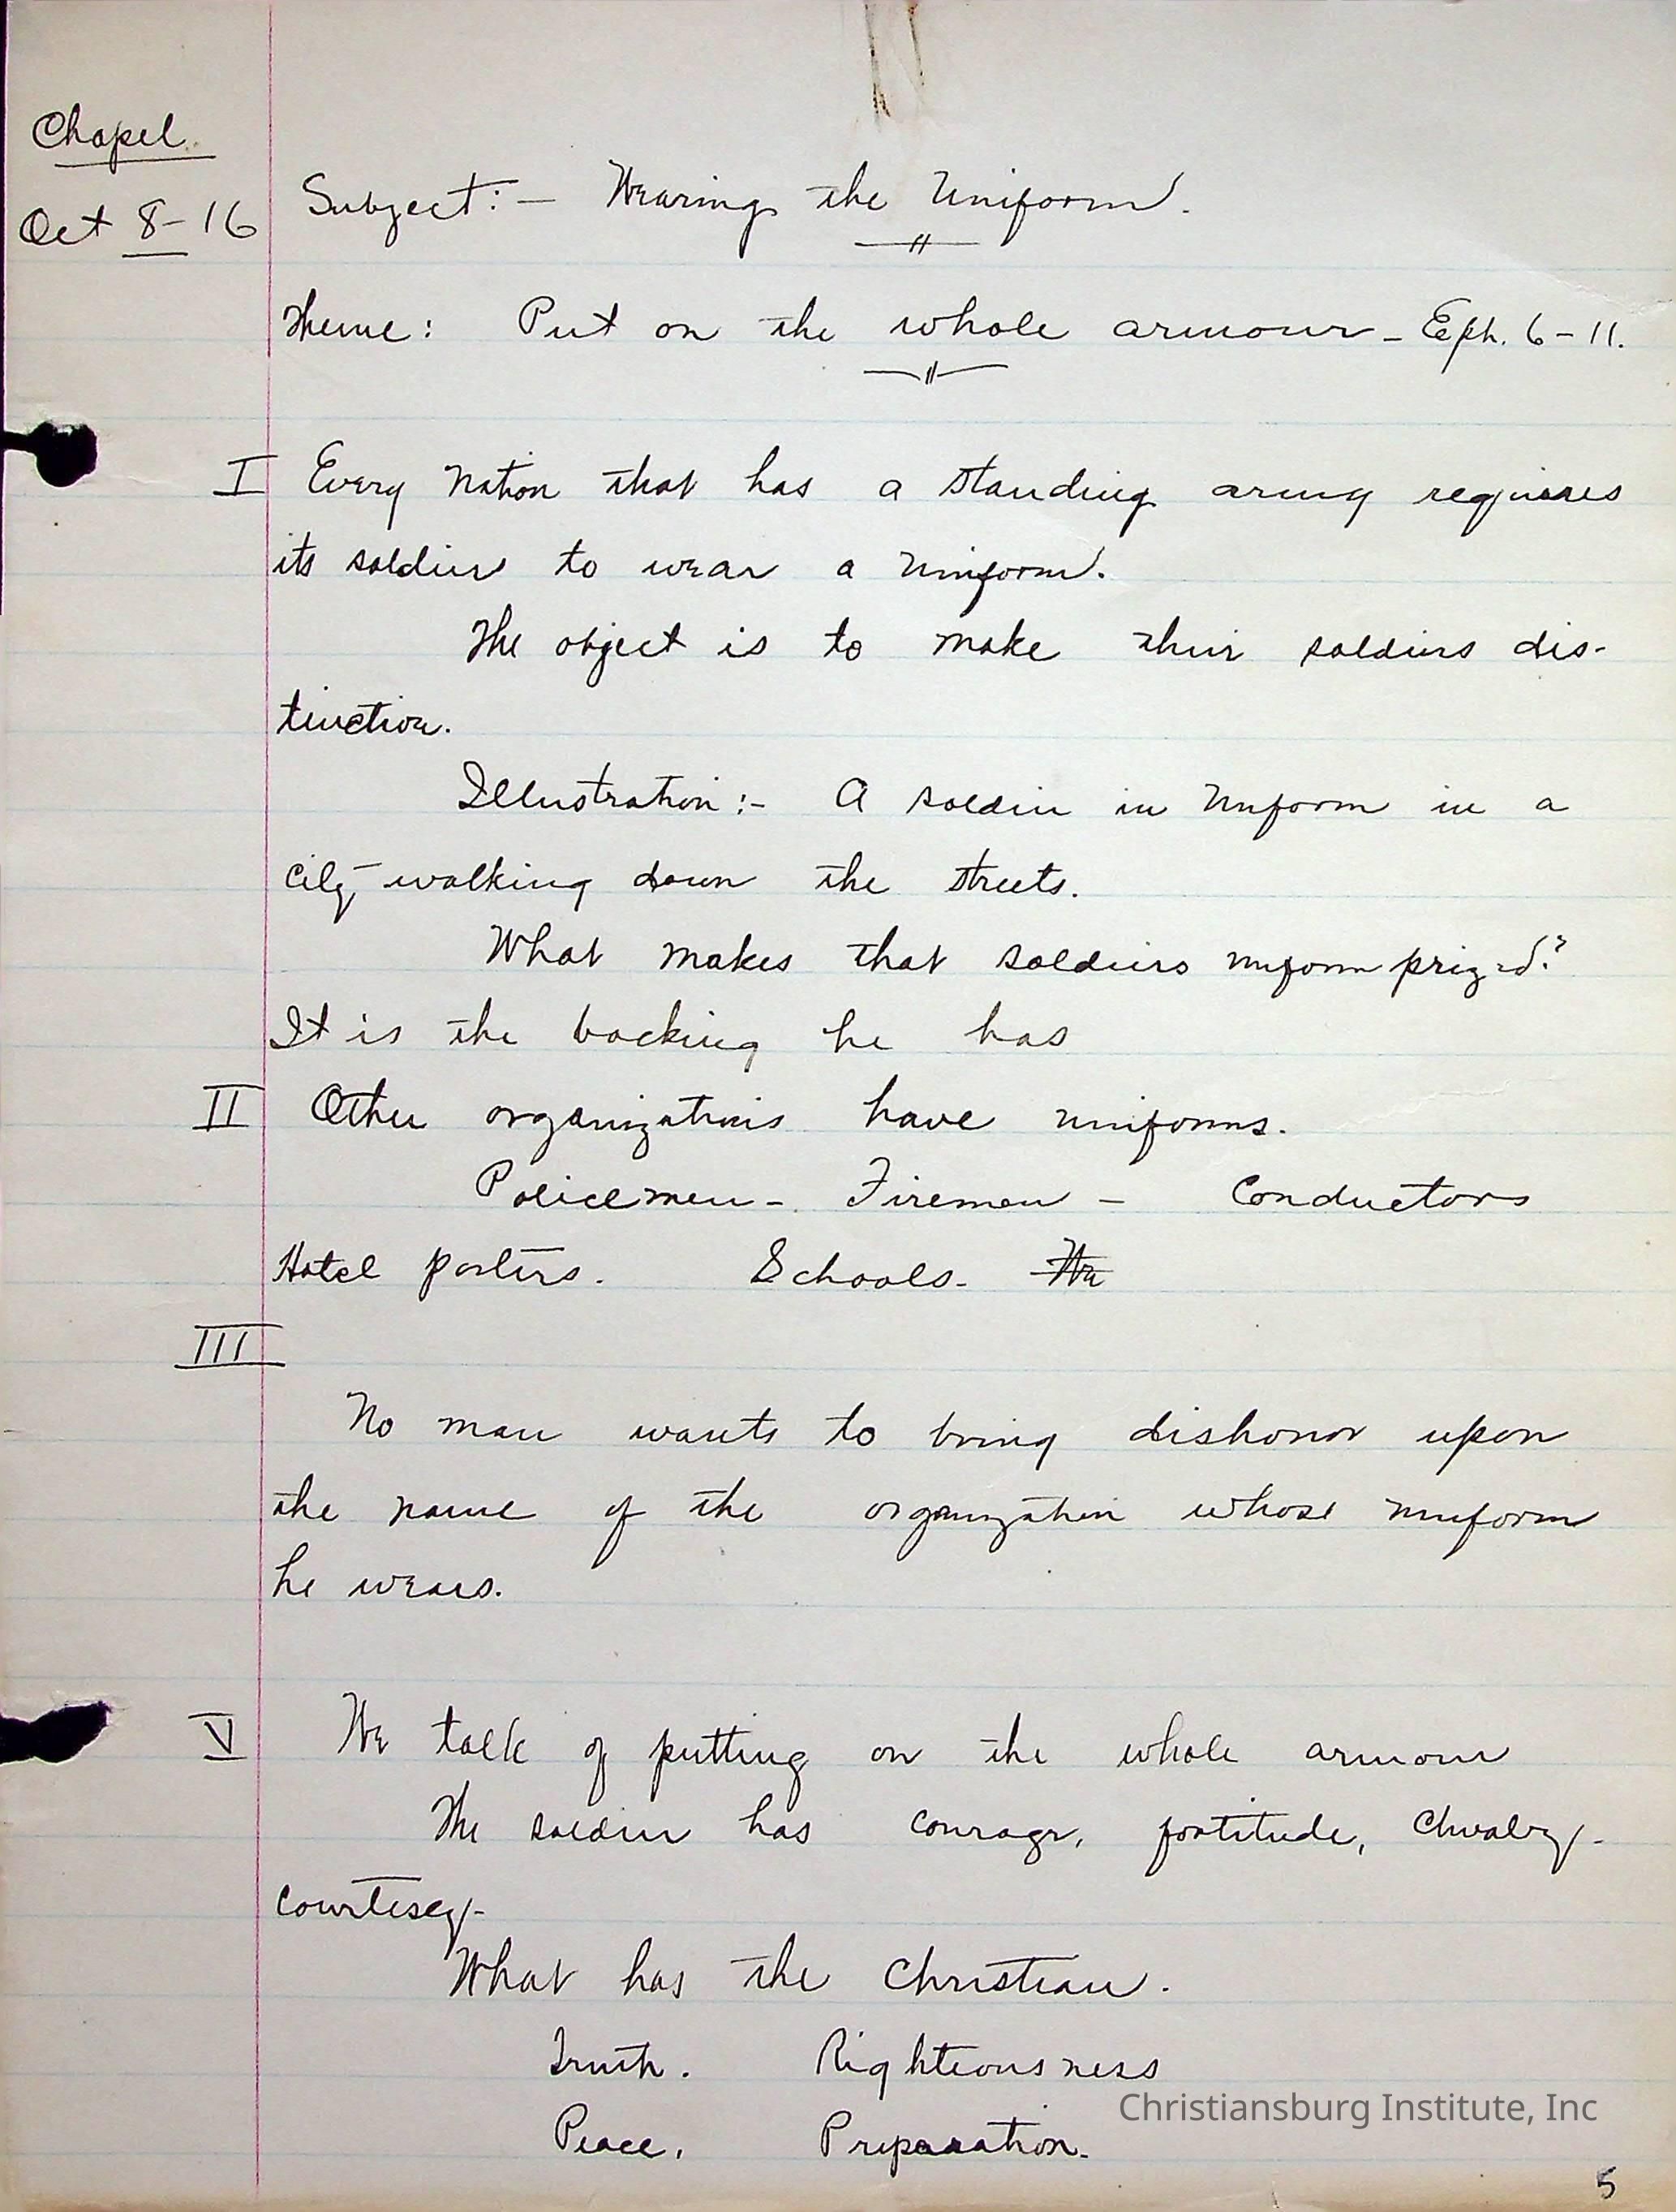 Chapel.
Oct 8-16
Subject:- Wearing the Uniform.
Theme: Put on the whole armour - Eph. 6-11.
I Every nation that has a standing army requires
its soldier to wear a uniform.
The object is to make their soldiers dis-
tinction.
Illustration:- A soldier in uniform in a
city - walking down the streets.
What makes that soldiers uniform prized?
It is the backing he has
II Other organizations have uniforms.
Policemen - Firemen - Conductors
Hotel porters. Schools. We
III
No man wants to bring dishonor upon
the name of the organization whose uniform
he wears.
V We talk of putting on the whole armour
The soldier has courage, fortitude, chivalry -
courtesey -
What has the Christian.
Truth. Righteousness
Peace. Preparation.
Christiansburg Institute, Inc
5